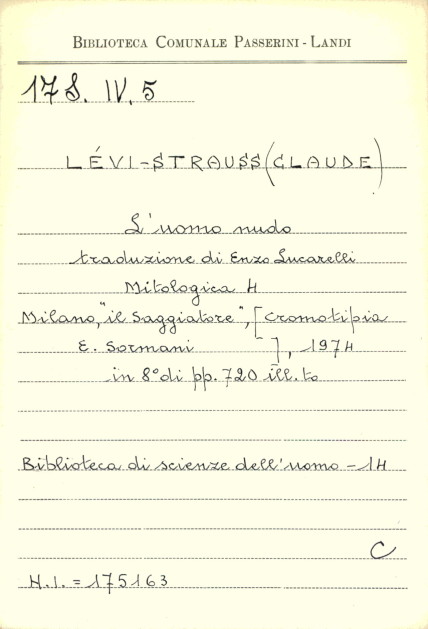 BIBLIOTECA COMUNALE PASSERINI - LANDI
17 S. IV. 5
LÉVI-STRAUSS (CLAUDE)
L'uomo nudo
traduzione di Enzo Lucarelli
Mitologica 4
Milano, "il Saggiatore", [Cromotipia
E. Sormani ], 1974
in 8° di pp. 720 ill.to
Biblioteca di scienze dell'uomo - 14
C
N.I. = 175163